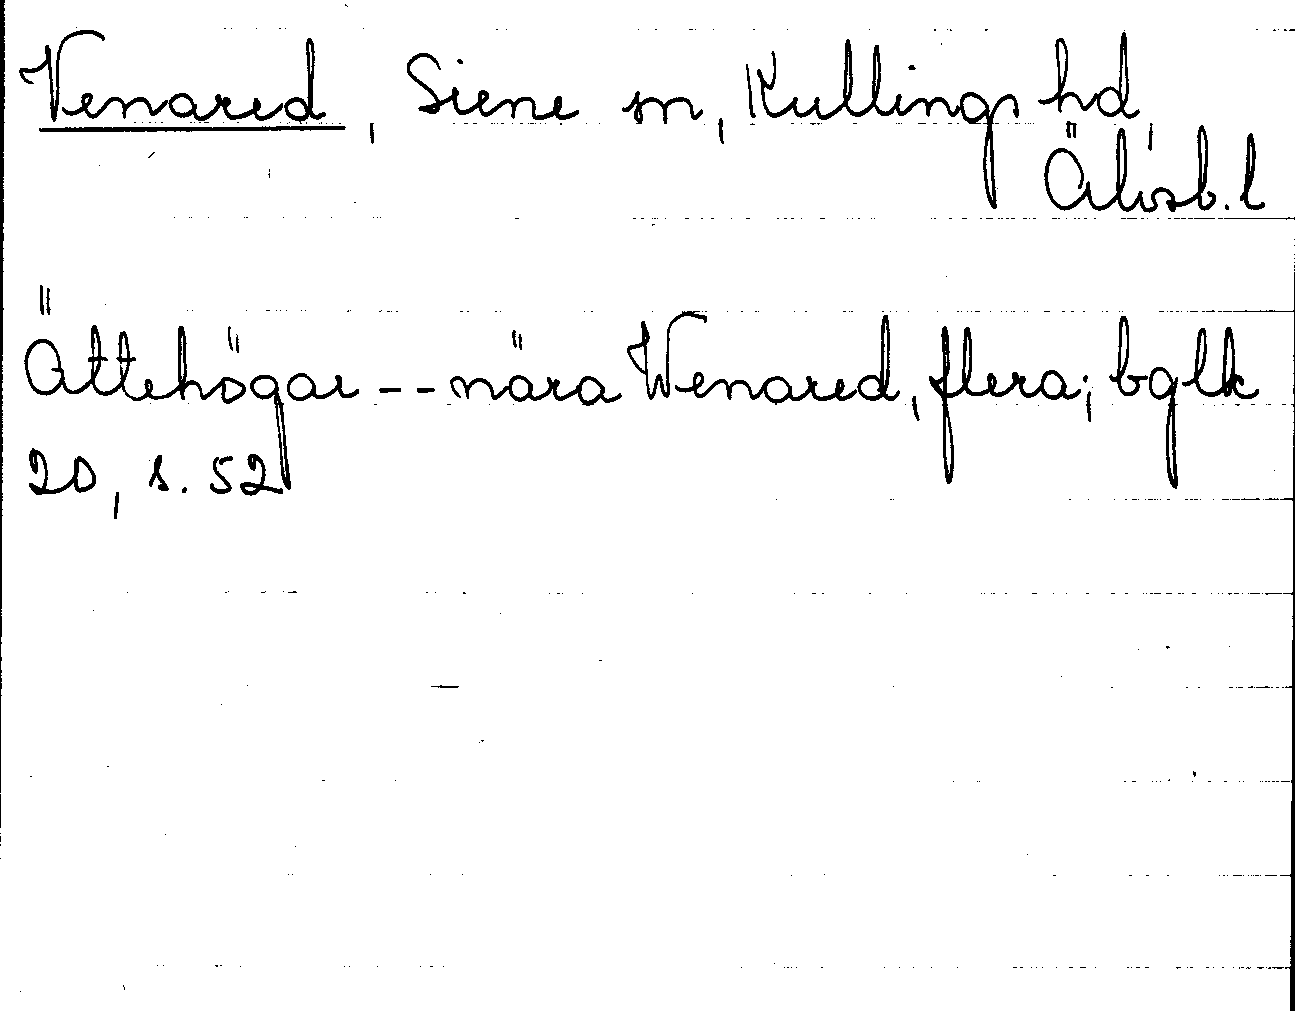 Venared, Siene sn, Kullings hd,
Älvsb. l
Ättehögar -- nära Wenared, flera; bglk
20, s. 52